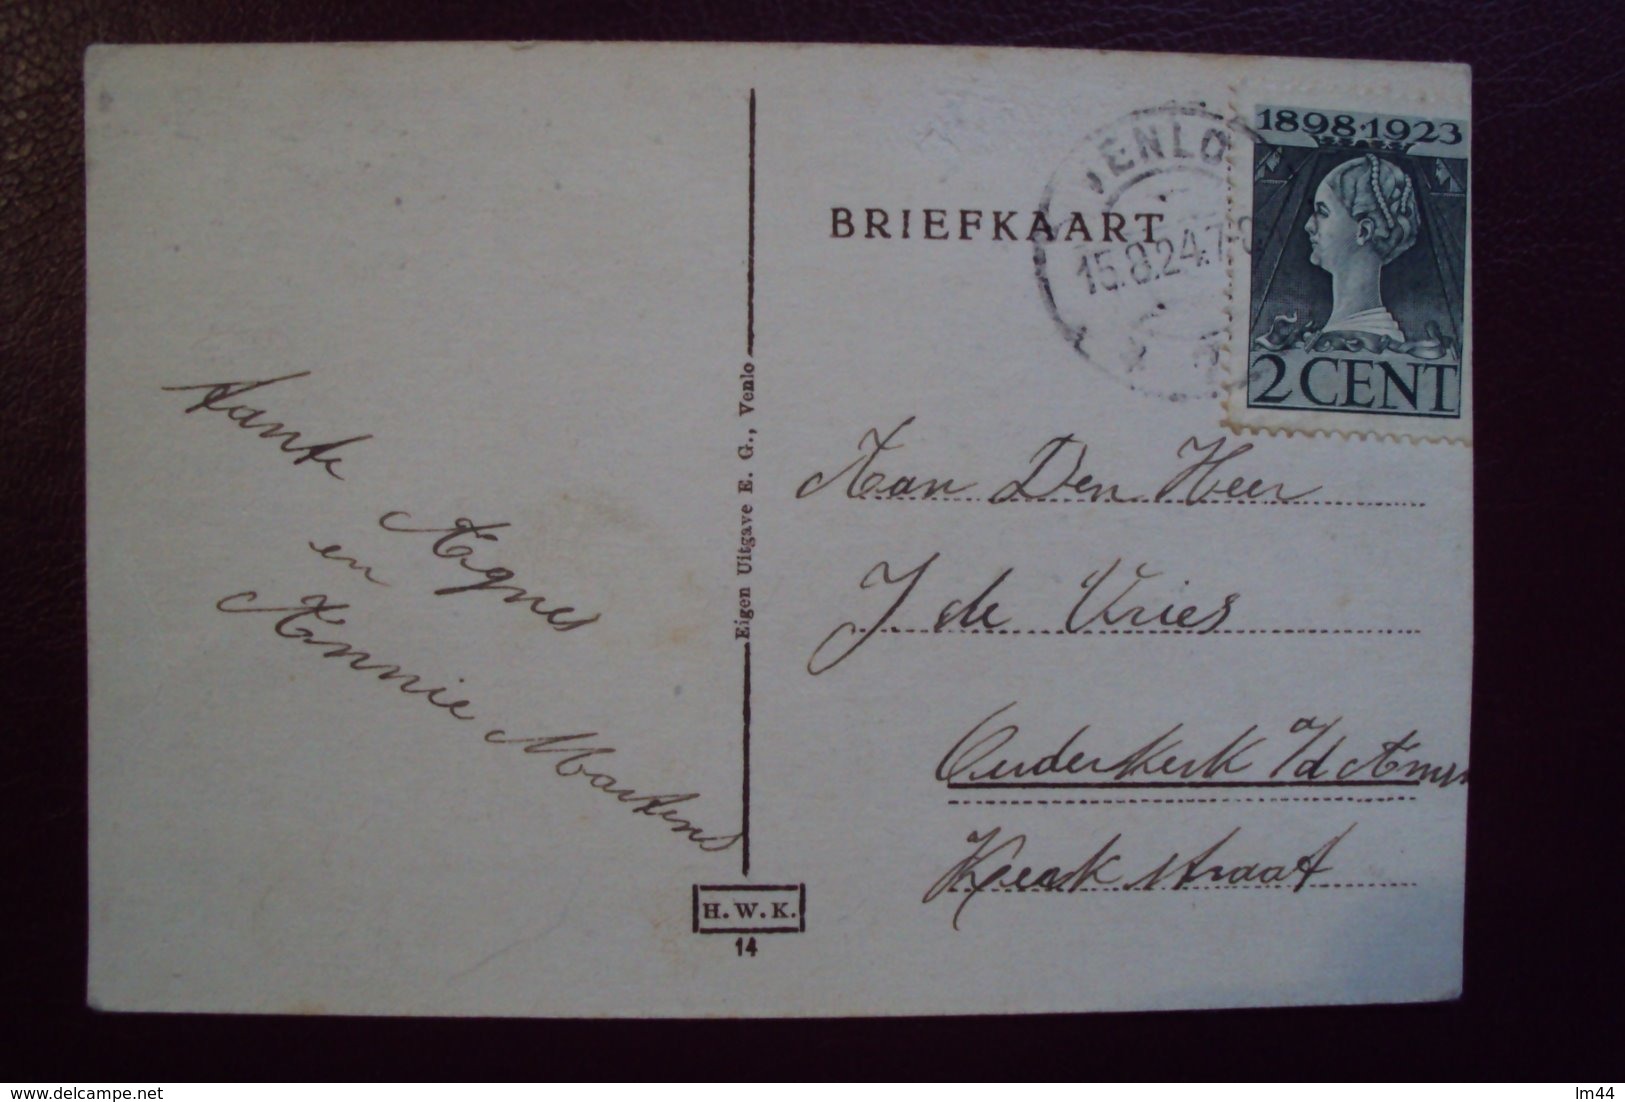 1898·1923
VENLO
15.8.24.7
2 CENT
BRIEFKAART
Aan Den Heer
J de Vries
Ouderkerk a/d Amst
Kerk straat
Tante Agnes
en
Annie Martens
Eigen Uitgave E. G., Venlo
H. W. K.
14
delcampe.net
lm44